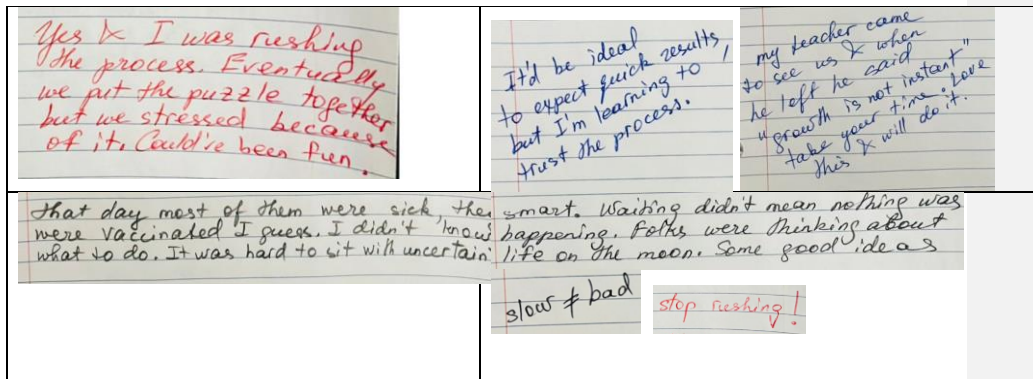 Yes & I was rushing
the process. Eventually
we put the puzzle together
but we stressed because
of it. Could've been fun.
It'd be ideal
to expect quick results,
but I'm learning to
trust the process.
my teacher came
to see us & when
he left he said
"growth is not instant"
take your time. Love
this & will do it.
that day most of them were sick, the
were vaccinated I guess. I didn't know
what to do. It was hard to sit with uncertain
smart. Waiting didn't mean nothing was
happening. Folks were thinking about
life on the moon. Some good ideas
slow ≠ bad
stop rushing!